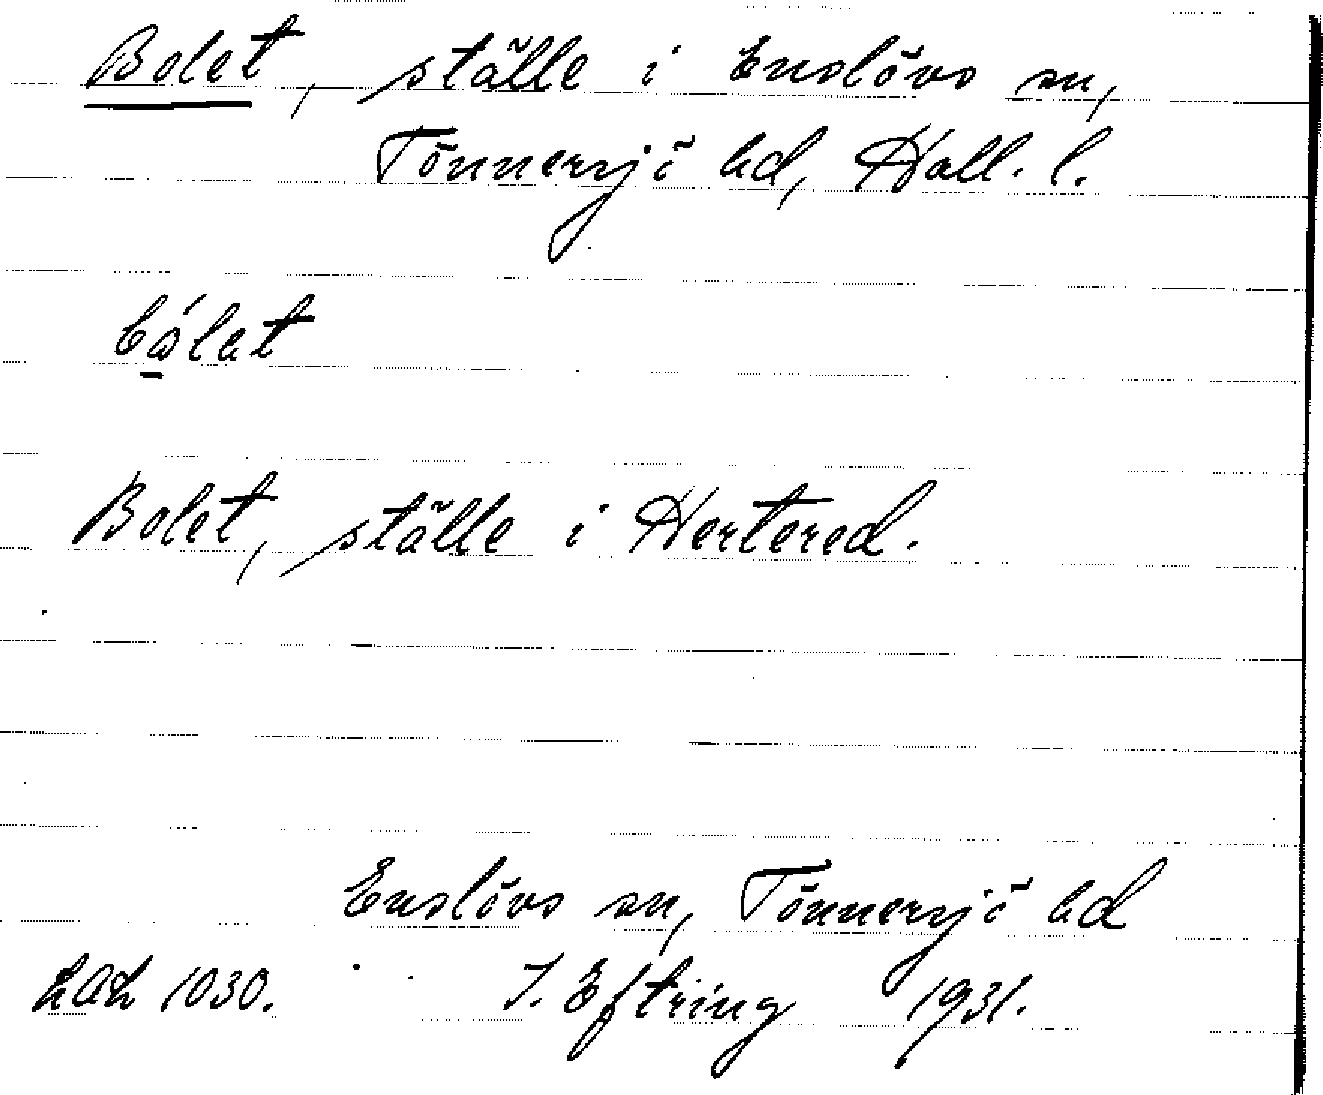 Bolet, ställe i Enslövs sn,
Tönnersjö hd, Hall. l.
bó̱lət
Bolet, ställe i Hertered.
Enslövs sn, Tönnersjö hd
LAL 1030. J. Eftring 1931.